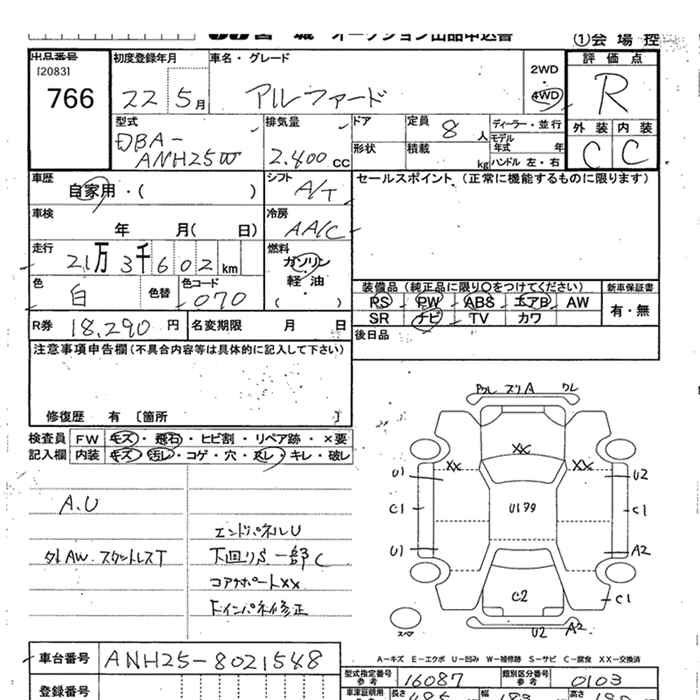 宮城 オークション出品申込書
①会場控
出品番号
[2083]
766
初度登録年月
22 5月
車名・グレード
アルファード
2WD
・
4WD
評価点
R
型式
DBA-
ANH25W
排気量
2.400 CC
ドア
形状
定員 8 人
積載 kg
ディーラー・並行
モデル
年式 年
ハンドル 左・右
外装 内装
C C
車歴
自家用・( )
シフト
A/T
セールスポイント (正常に機能するものに限ります)
車検
年 月( 日)
冷房
AA/C
走行
21万3千602km
燃料
ガソリン
・
軽油
( )
色
白
色替
色コード
070
装備品 (純正品に限り○をつけてください)
PS PW ABS エアB AW
SR ナビ TV カワ
新車保証書
有・無
R券 18,290 円
名変期限 月 日
後日品
注意事項申告欄(不具合内容等は具体的に記入して下さい)
修復歴 有 [箇所 ]
検査員
記入欄
FW キズ・飛石・ヒビ割・リペア跡・×要
内装 キズ・汚レ・コゲ・穴・スレ・キレ・破レ
A.U
エンドパネルU
社外AW. スタットレスT
下回りS 一部C
コアサポートXX
インパネ修正
ワレ スリA ワレ
XX
XX
XX
U1
U2
C1
U179
C1
U1
A2
C2
C1
スペア
U2
A2
A-キズ E-エクボ U-凹み W-補修跡 S-サビ C-腐食 XX-交換済
車台番号 ANH25-8021548
型式指定番号
参考
16087
類別区分番号
参考
0103
登録番号
車庫証明用
長さ 485
幅 183
高さ